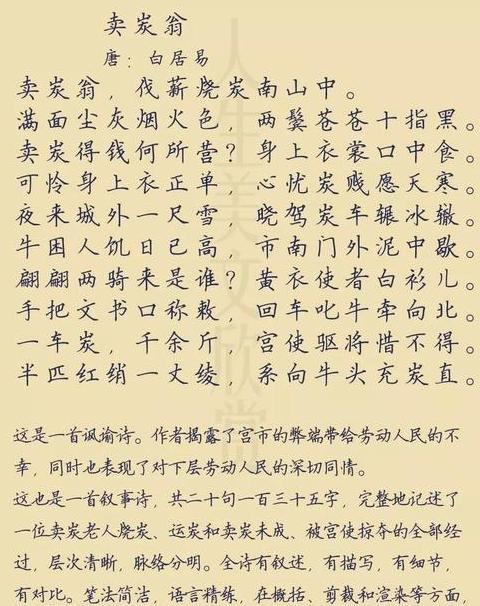 卖炭翁
唐：白居易
卖炭翁，伐薪烧炭南山中。
满面尘灰烟火色，两鬓苍苍十指黑。
卖炭得钱何所营？身上衣裳口中食。
可怜身上衣正单，心忧炭贱愿天寒。
夜来城外一尺雪，晓驾炭车辗冰辙。
牛困人饥日已高，市南门外泥中歇。
翩翩两骑来是谁？黄衣使者白衫儿。
手把文书口称敕，回车叱牛牵向北。
一车炭，千余斤，宫使驱将惜不得。
半匹红绡一丈绫，系向牛头充炭直。
这是一首讽谕诗。作者揭露了宫市的弊端带给劳动人民的不
幸，同时也表现了对下层劳动人民的深切同情。
这也是一首叙事诗，共二十句一百三十五字，完整地记述了
一位卖炭老人烧炭、运炭和卖炭未成、被宫使掠夺的全部经
过，层次清晰，脉络分明。全诗有叙述，有描写，有细节，
有对比。笔法简洁，语言精练，在概括、剪裁和渲染等方面，
人生美文欣赏